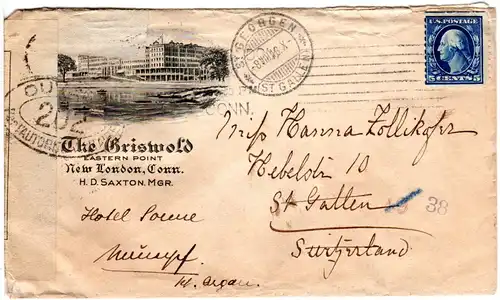 ST. GEORGEN
(ST GALLEN)
U.S. POSTAGE
5 CENTS 5
CONN.
OU
202
The Griswold
EASTERN POINT
New London, Conn.
H. D. SAXTON, MGR.
Miss Hanna Zollikofer
Hebelstr 10
St Gallen
38
Switzerland
Hotel